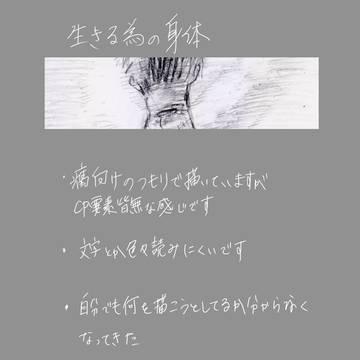 生きる為の身体
・腐向けのつもりで描いていますが
CP要素皆無な感じです
・文字とか色々読みにくいです
・自分でも何を描こうとしてるか分からなく
なってきた